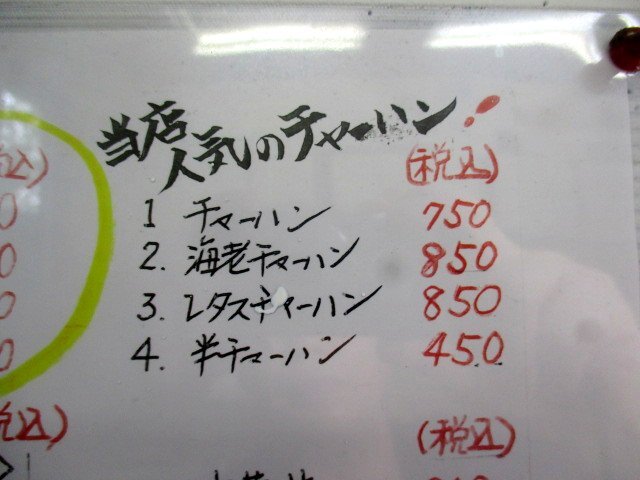 当店
人気のチャーハン!
(税込)
1 チャーハン 750
2. 海老チャーハン 850
3. レタスチャーハン 850
4. 半チャーハン 450
税込)
(税込)